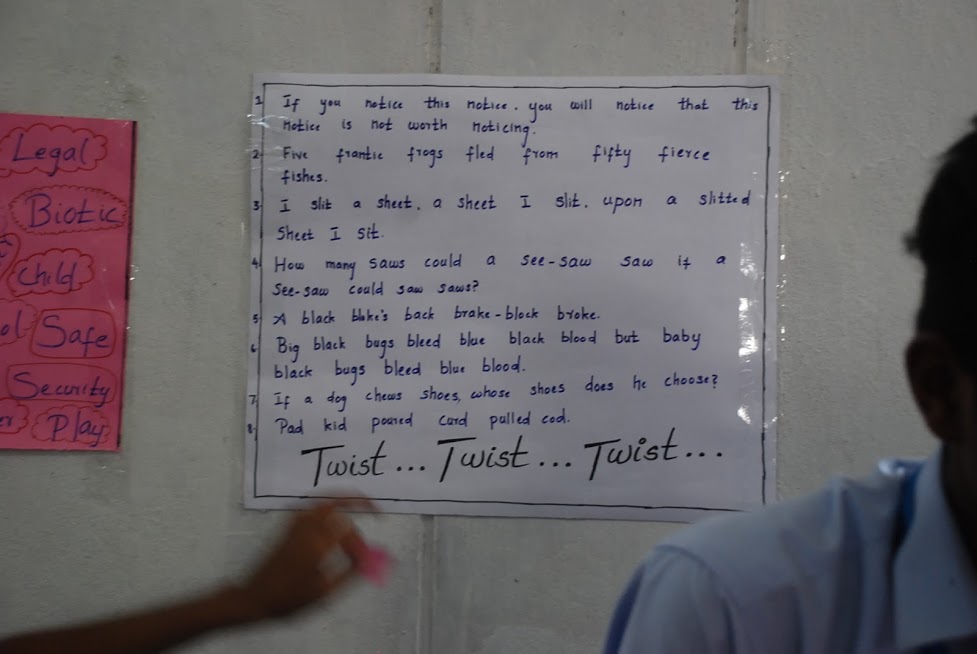 Legal
Biotic
Child
Safe
Security
Play
1 If you notice this notice. you will notice that this
notice is not worth noticing.
2. Five frantic frogs fled from fifty fierce
fishes.
3. I slit a sheet. a sheet I slit. upon a slitted
Sheet I sit.
4. How many saws could a see-saw saw if a
See-saw could saw saws?
5. A black bloke's back brake-block broke.
6. Big black bugs bleed blue black blood but baby
black bugs bleed blue blood.
7. If a dog chews shoes, whose shoes does he choose?
8. Pad kid poured curd pulled cod.
Twist... Twist... Twist...